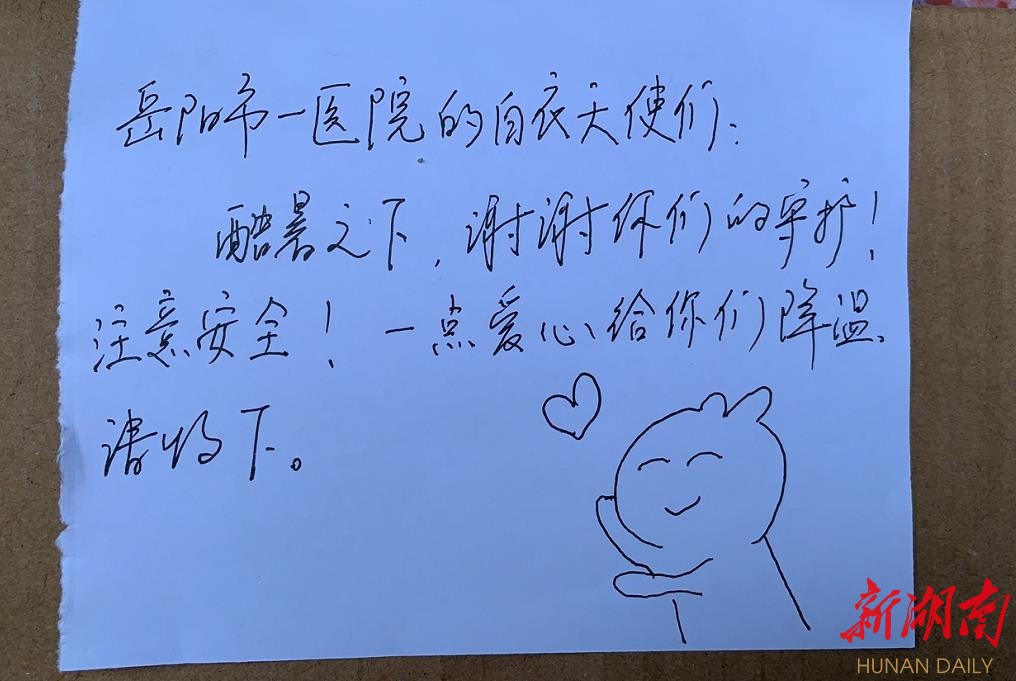 岳阳市一医院的白衣天使们:
酷暑之下,谢谢你们的守护!
注意安全!一点爱心给你们降温、
请收下。
新湖南
HUNAN DAILY